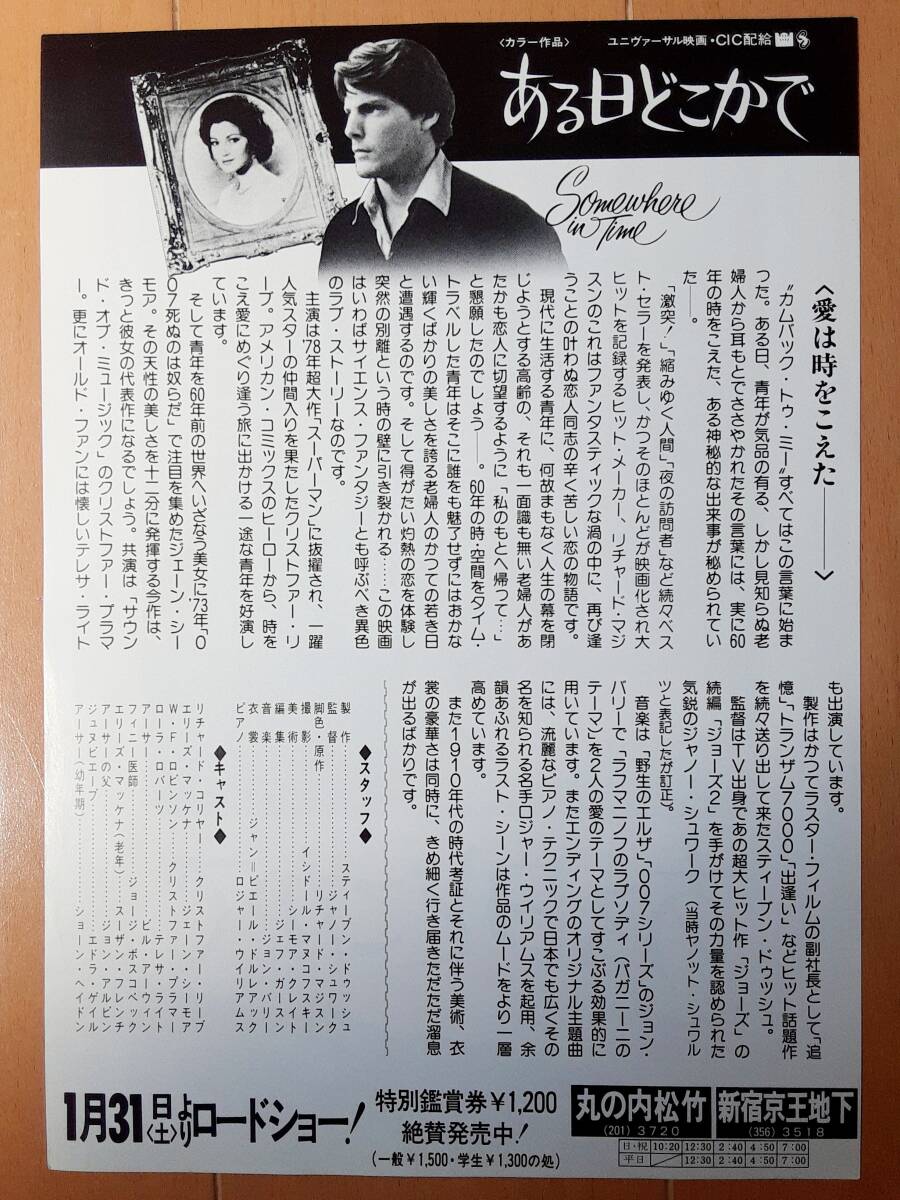 〈カラー作品〉
ユニヴァーサル映画・CIC配給
ある日どこかで
Somewhere
in Time
〈愛は時をこえた――〉
“カムバック・トゥ・ミー”すべてはこの言葉に始ま
った。ある日、青年が気品の有る、しかし見知らぬ老
婦人から耳もとでささやかれたその言葉には、実に60
年の時をこえた、ある神秘的な出来事が秘められてい
た――。
「激突！」「縮みゆく人間」「夜の訪問者」など続々ベス
ト・セラーを発表し、かつそのほとんどが映画化され大
ヒットを記録するヒット・メーカー、リチャード・マジ
スンのこれはファンタスティックな渦の中に、再び逢
うことの叶わぬ恋人同志の辛く苦しい恋の物語です。
現代に生活する青年に、何故まもなく人生の幕を閉
じようとする高齢の、それも一面識も無い老婦人があ
たかも恋人に切望するように「私のもとへ帰つて…」
と懇願したのでしょう――。60年の時・空間をタイム・
トラベルした青年はそこに誰をも魅了せずにはおかな
い輝くばかりの美しさを誇る老婦人のかつての若き日
と遭遇するのです。そして得がたい灼熱の恋を体験し
突然の別離という時の壁に引き裂かれる……この映画
はいわばサイエンス・ファンタジーとも呼ぶべき異色
のラブ・ストーリーなのです。
主演は'78年超大作「スーパーマン」に抜擢され、一躍
人気スターの仲間入りを果たしたクリストファー・リ
ーブ。アメリカン・コミックスのヒーローから、時を
こえ愛にめぐり逢う旅に出かける一途な青年を好演し
ています。
そして青年を60年前の世界へいざなう美女に'73年「0
07死ぬのは奴らだ」で注目を集めたジェーン・シー
モア。その天性の美しさを十二分に発揮する今作は、
きつと彼女の代表作になるでしょう。共演は「サウン
ド・オブ・ミュージック」のクリストファー・プラマ
ー。更にオールド・ファンには懐しいテレサ・ライト
も出演しています。
製作はかつてラスター・フィルムの副社長として「追
憶」「トランザム7000」「出逢い」などヒット話題作
を続々送り出して来たスティーブン・ドゥッシュ。
監督はTV出身であの超大ヒット作「ジョーズ」の
続編「ジョーズ2」を手がけてその力量を認められた
気鋭のジャノー・シュワーク（当時ヤノット・シュワル
ツと表記したが訂正）。
音楽は「野生のエルザ」「007シリーズ」のジョン・
バリーで「ラフマニノフのラプソディ（パガニーニの
テーマ）」を2人の愛のテーマとしてすこぶる効果的に
用いています。またエンディングのオリジナル主題曲
には、流麗なピアノ・テクニックで日本でも広くその
名を知られる名手ロジャー・ウイリアムスを起用、余
韻あふれるラスト・シーンは作品のムードをより一層
高めています。
また1910年代の時代考証とそれに伴う美術、衣
裳の豪華さは同時に、きめ細く行き届きただただ溜息
が出るばかりです。
◆スタッフ◆
製作……スティーブン・ドゥッシュ
監督……ジャノー・シュワーク
脚色・原作……リチャード・マジスン
撮影……イシドール・マヌコフスキー
美術……シーモア・クレイト
編集……ジェフ・ガースン
音楽……ジョン・バリー
衣裳……ジャン＝ピエール・ドルレアック
ピアノ……ロジャー・ウイリアムス
◆キャスト◆
リチャード・コリヤー……クリストファー・リーブ
エリーズ・マッケナ……ジェーン・シーモア
W・F・ロビンソン……クリストファー・プラマー
ローラ・ロバーツ……テレサ・ライト
アーサー……ビル・アーウィン
フィニー医師……ジョージ・ボスコベック
エリーズ・マッケナ（老年）……スーザン・フレンチ
アーサーの父……ジョン・アルビン
ジュヌビエーブ……エドラ・ゲイル
アーサー（幼年期）……ショーン・ヘイドン
1月31日〈土〉よりロードショー！
特別鑑賞券¥1,200
絶賛発売中！
(一般¥1,500・学生¥1,300の処)
丸の内松竹
(201) 3720
新宿京王地下
(356) 3518
日・祝 10:20 12:30 2:40 4:50 7:00
平日 12:30 2:40 4:50 7:00